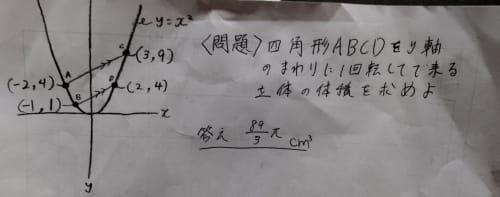 ℓ y=x²
C
(3,9)
(-2,4) A
D (2,4)
(-1,1) B
x
y
〈問題〉四角形ABCDをy軸
のまわりに1回転してで来る
立体の体積を求めよ
答え 89/3 π cm³